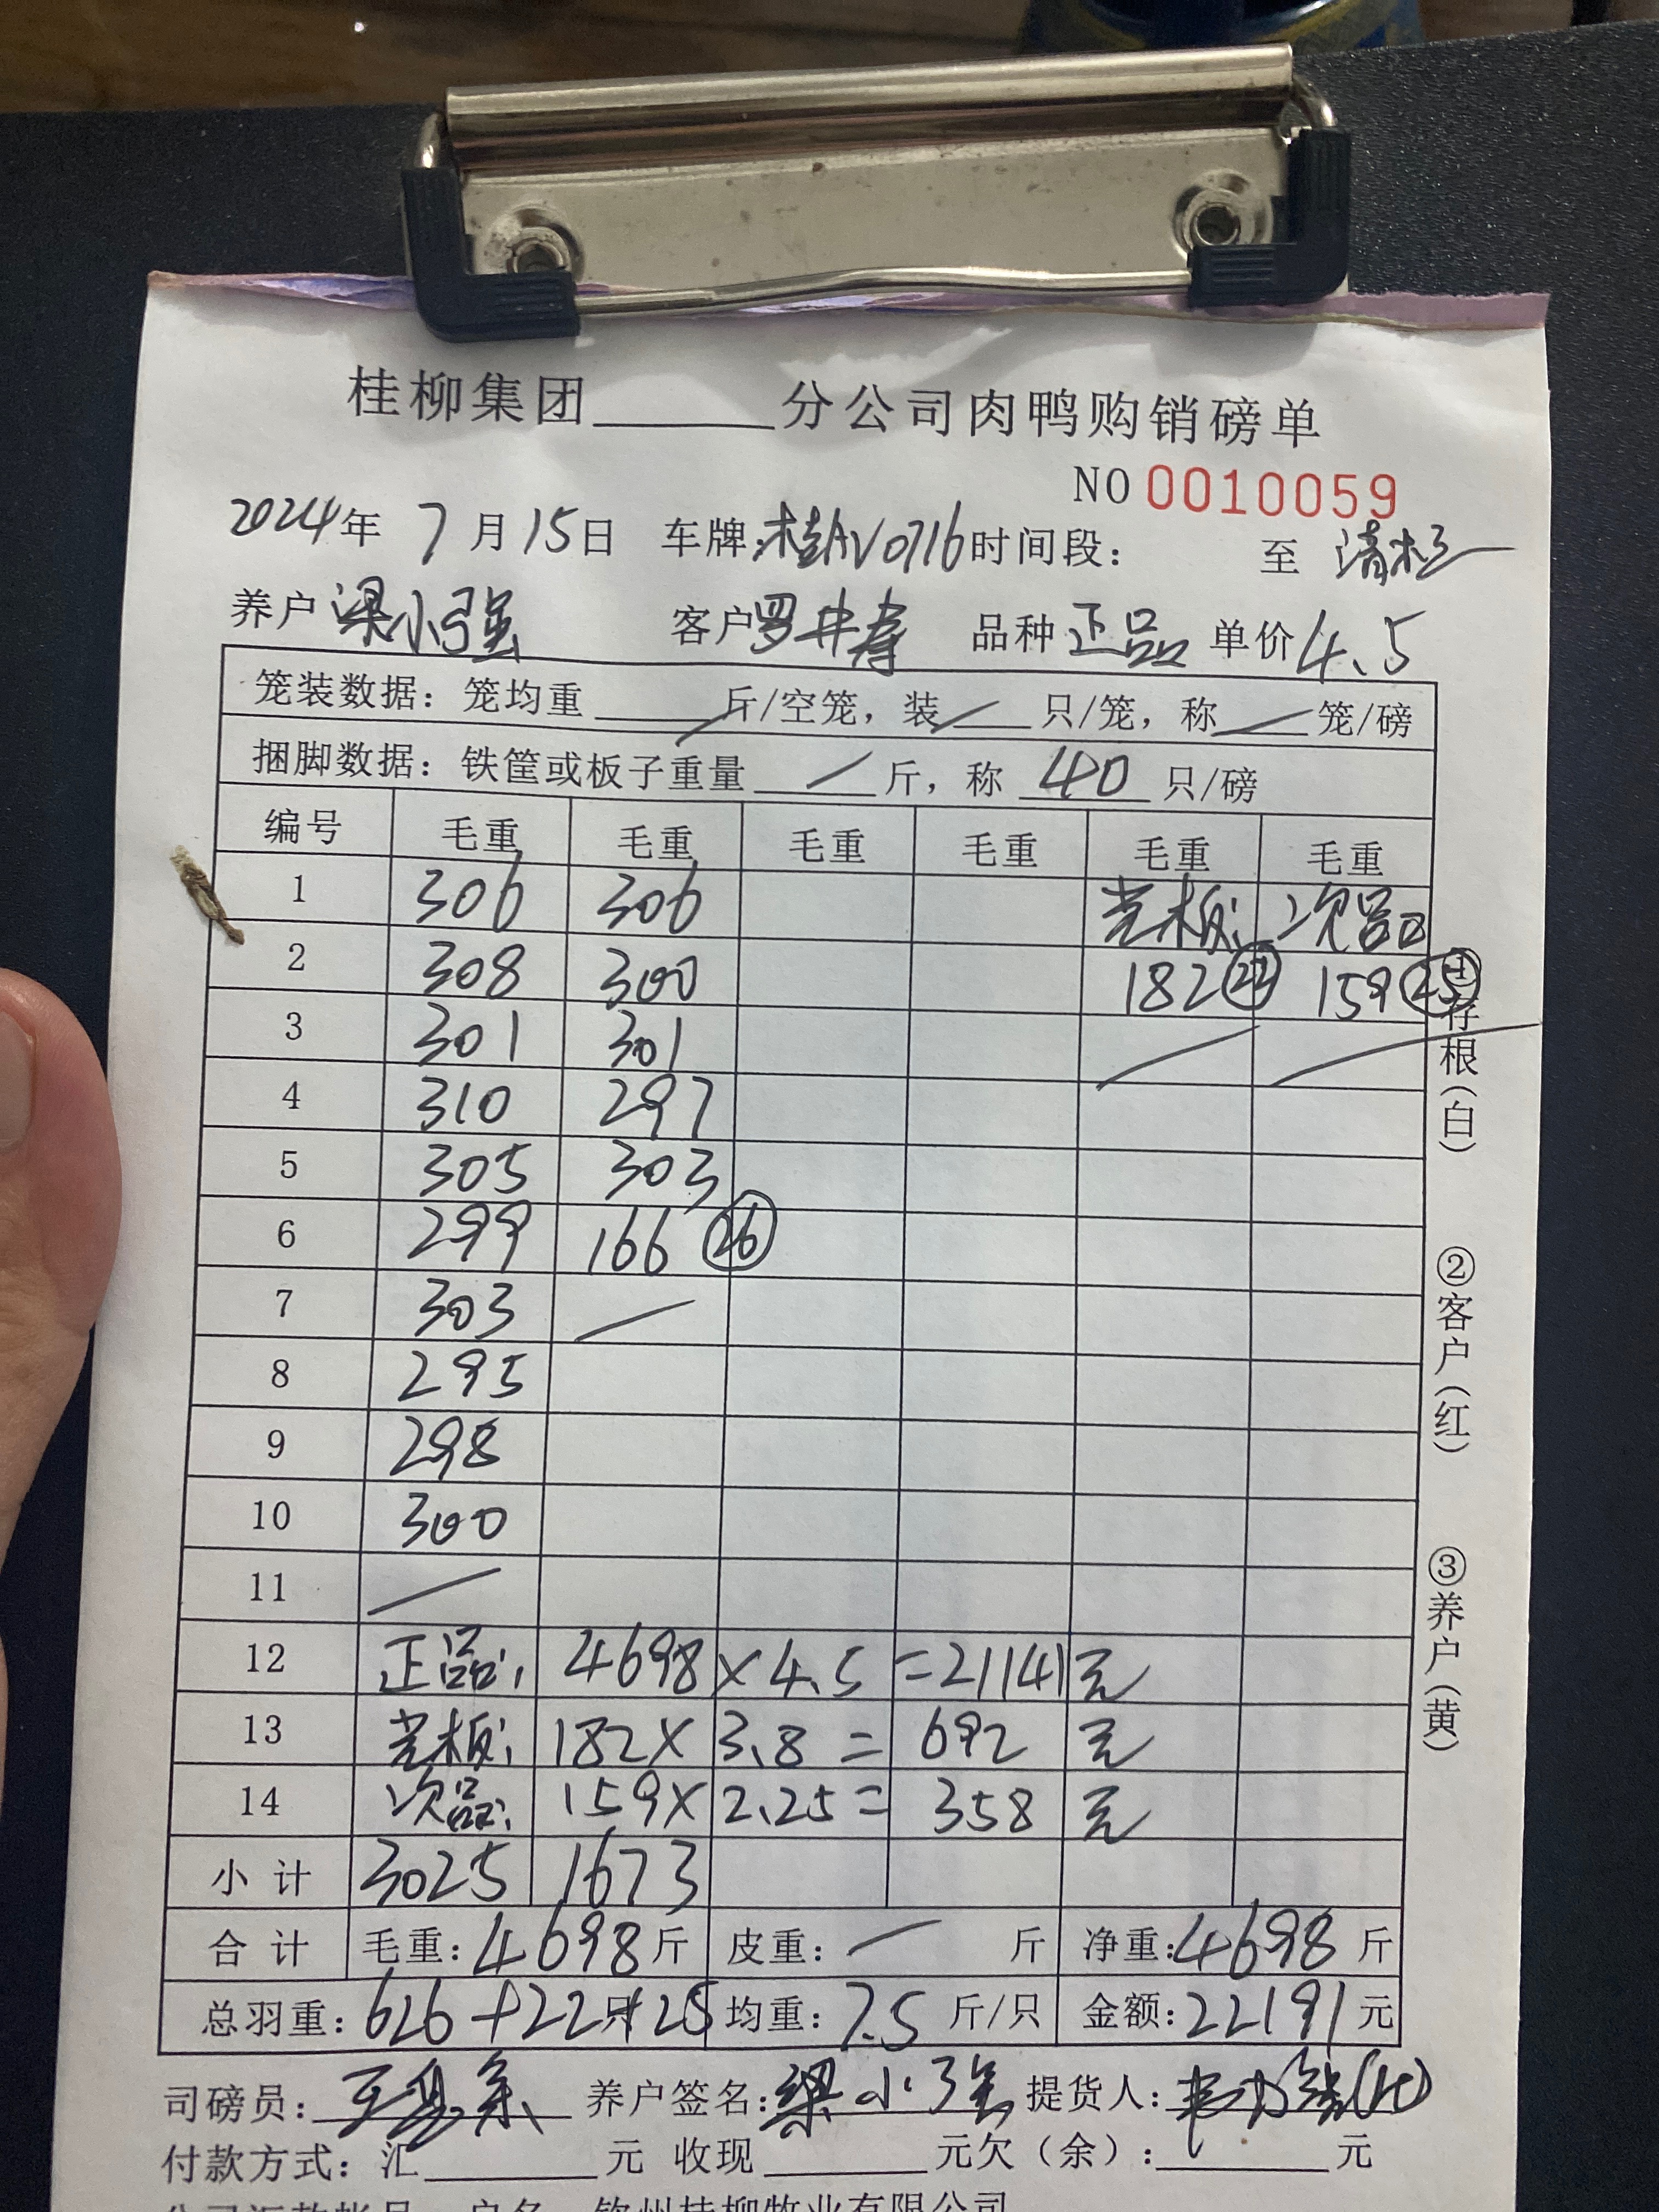 桂柳集团______分公司肉鸭购销磅单
NO 0010059
2024年 7月15日 车牌:桂AV0716时间段： 至
养户 梁小强 客户 罗井寿 品种 正品 单价 4.5
笼装数据：笼均重 / 斤/空笼，装 / 只/笼，称 / 笼/磅
捆脚数据：铁筐或板子重量 / 斤，称 40 只/磅
编号 毛重 毛重 毛重 毛重 毛重 毛重
1 306 306 光板: 次品
2 308 300 182 22 159 25
3 301 301 / /
4 310 297
5 305 303
6 299 166 26
7 303 /
8 295
9 298
10 300
11 /
12 正品: 4698 × 4.5 = 21141 元
13 光板: 182 × 3.8 = 692 元
14 次品: 159 × 2.25 = 358 元
小计 3025 1673
合计 毛重：4698 斤 皮重： / 斤 净重：4698 斤
总羽重：626+22只+25 均重：7.5 斤/只 金额：22191 元
司磅员： 养户签名：梁小强 提货人：
付款方式：汇______元 收现______元欠（余）：______元
公司汇款帐号 户名 钦州桂柳牧业有限公司
①存根（白）
②客户（红）
③养户（黄）